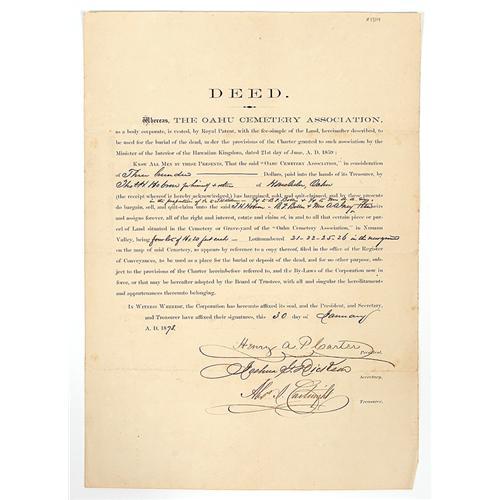 DEED.
Whereas, THE OAHU CEMETERY ASSOCIATION,
as a body corporate, is vested, by Royal Patent, with the fee-simple of the Land, hereinafter described, to
be used for the burial of the dead, under the provisions of the Charter granted to such association by the
Minister of the Interior of the Hawaiian Kingdom, dated 21st day of June, A. D. 1859:
KNOW ALL MEN BY THESE PRESENTS, That the said "OAHU CEMETERY ASSOCIATION," in consideration
of Three hundred Dollars, paid into the hands of its Treasurer, by
of Honolulu, Oahu
(the receipt whereof is hereby acknowledged,) has bargained, sold, and quit-claimed, and by these presents
do bargain, sell, and quit-claim unto the said
and assigns forever, all of the right and interest, estate and claims of, in and to all that certain piece or par-
cel of Land situated in the Cemetery or Grave-yard of the "Oahu Cemetery Association," in Nuuanu
Valley, being four lots of feet each - Lot numbered 21-22-25-26 in the new ground
on the map of said Cemetery, as appears by reference to a copy thereof, filed in the office of the Register
of Conveyances, to be used as a place for the burial or deposit of the dead, and for no other purpose, subject
to the provisions of the Charter hereinbefore referred to, and the By-Laws of the Corporation now in
force, or that may be hereafter adopted by the Board of Trustees, with all and singular the hereditaments
and appurtenances thereunto belonging.
IN WITNESS WHEREOF, the Corporation has hereunto affixed its seal, and the President, and Secretary,
and Treasurer have affixed their signatures, this 30 day of January
A. D. 1878.
Henry A. P. Carter
President.
Joshua G. Dickson
Secretary.
Alex. J. Cartwright
Treasurer.